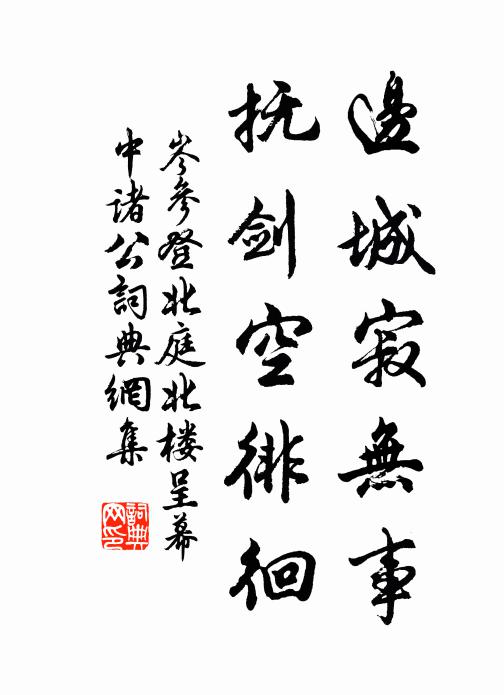 邊城寂無事
抚剑空徘徊
岑參登北庭北楼呈幕
中诸公詞典網集
詞典网印